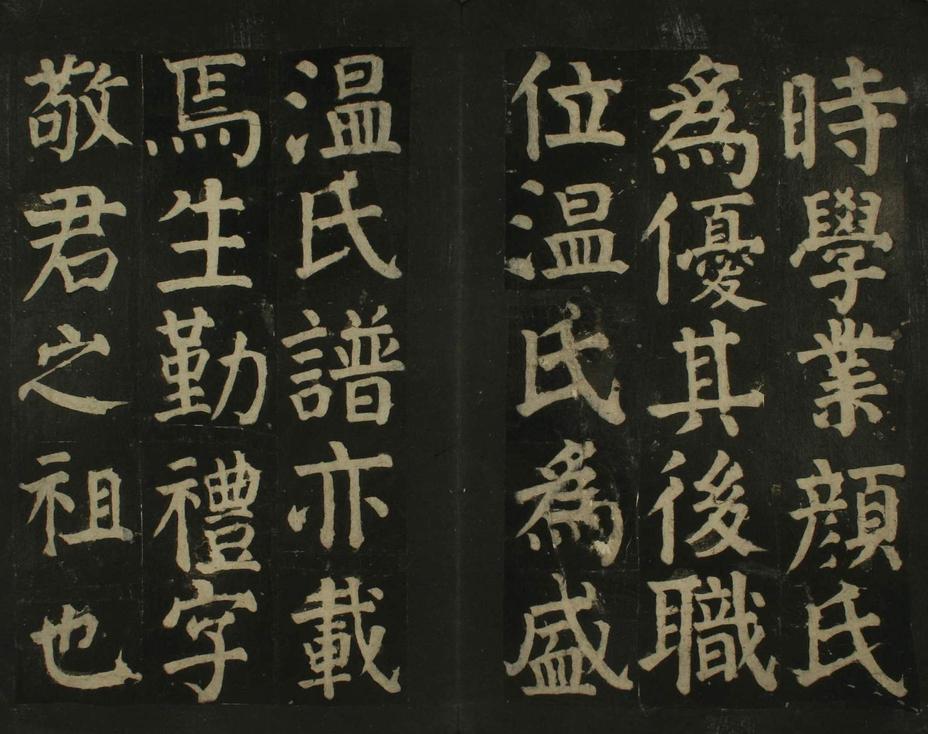 時學業顏氏
爲優其後職
位温氏爲盛
温氏譜亦載
焉生勤禮字
敬君之祖也